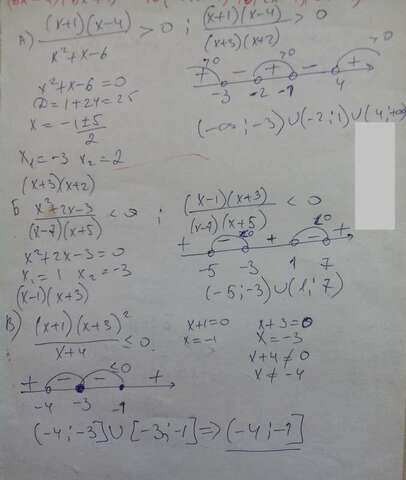 А) (x+1)(x-4) / x²+x-6 > 0 ; (x+1)(x-4) / (x+3)(x+2) > 0
x²+x-6=0
D=1+24=25
x= -1±5 / 2
x₁=-3 x₂=2
(x+3)(x+2)
+ - + - +
-3 -2 -1 4
(-∞;-3)∪(-2;1)∪(4;+∞)
Б x²+2x-3 / (x-7)(x+5) < 0 ; (x-1)(x+3) / (x-7)(x+5) < 0
x²+2x-3=0
x₁=1 x₂=-3
(x-1)(x+3)
+ - + - +
-5 -3 1 7
(-5;-3)∪(1;7)
В) (x+1)(x+3)² / x+4 ≤ 0
x+1=0 x+3=0
x=-1 x=-3
x+4≠0
x≠-4
+ - - ≤0 +
-4 -3 -1
(-4;-3]∪[-3;-1]=>(-4;-1]